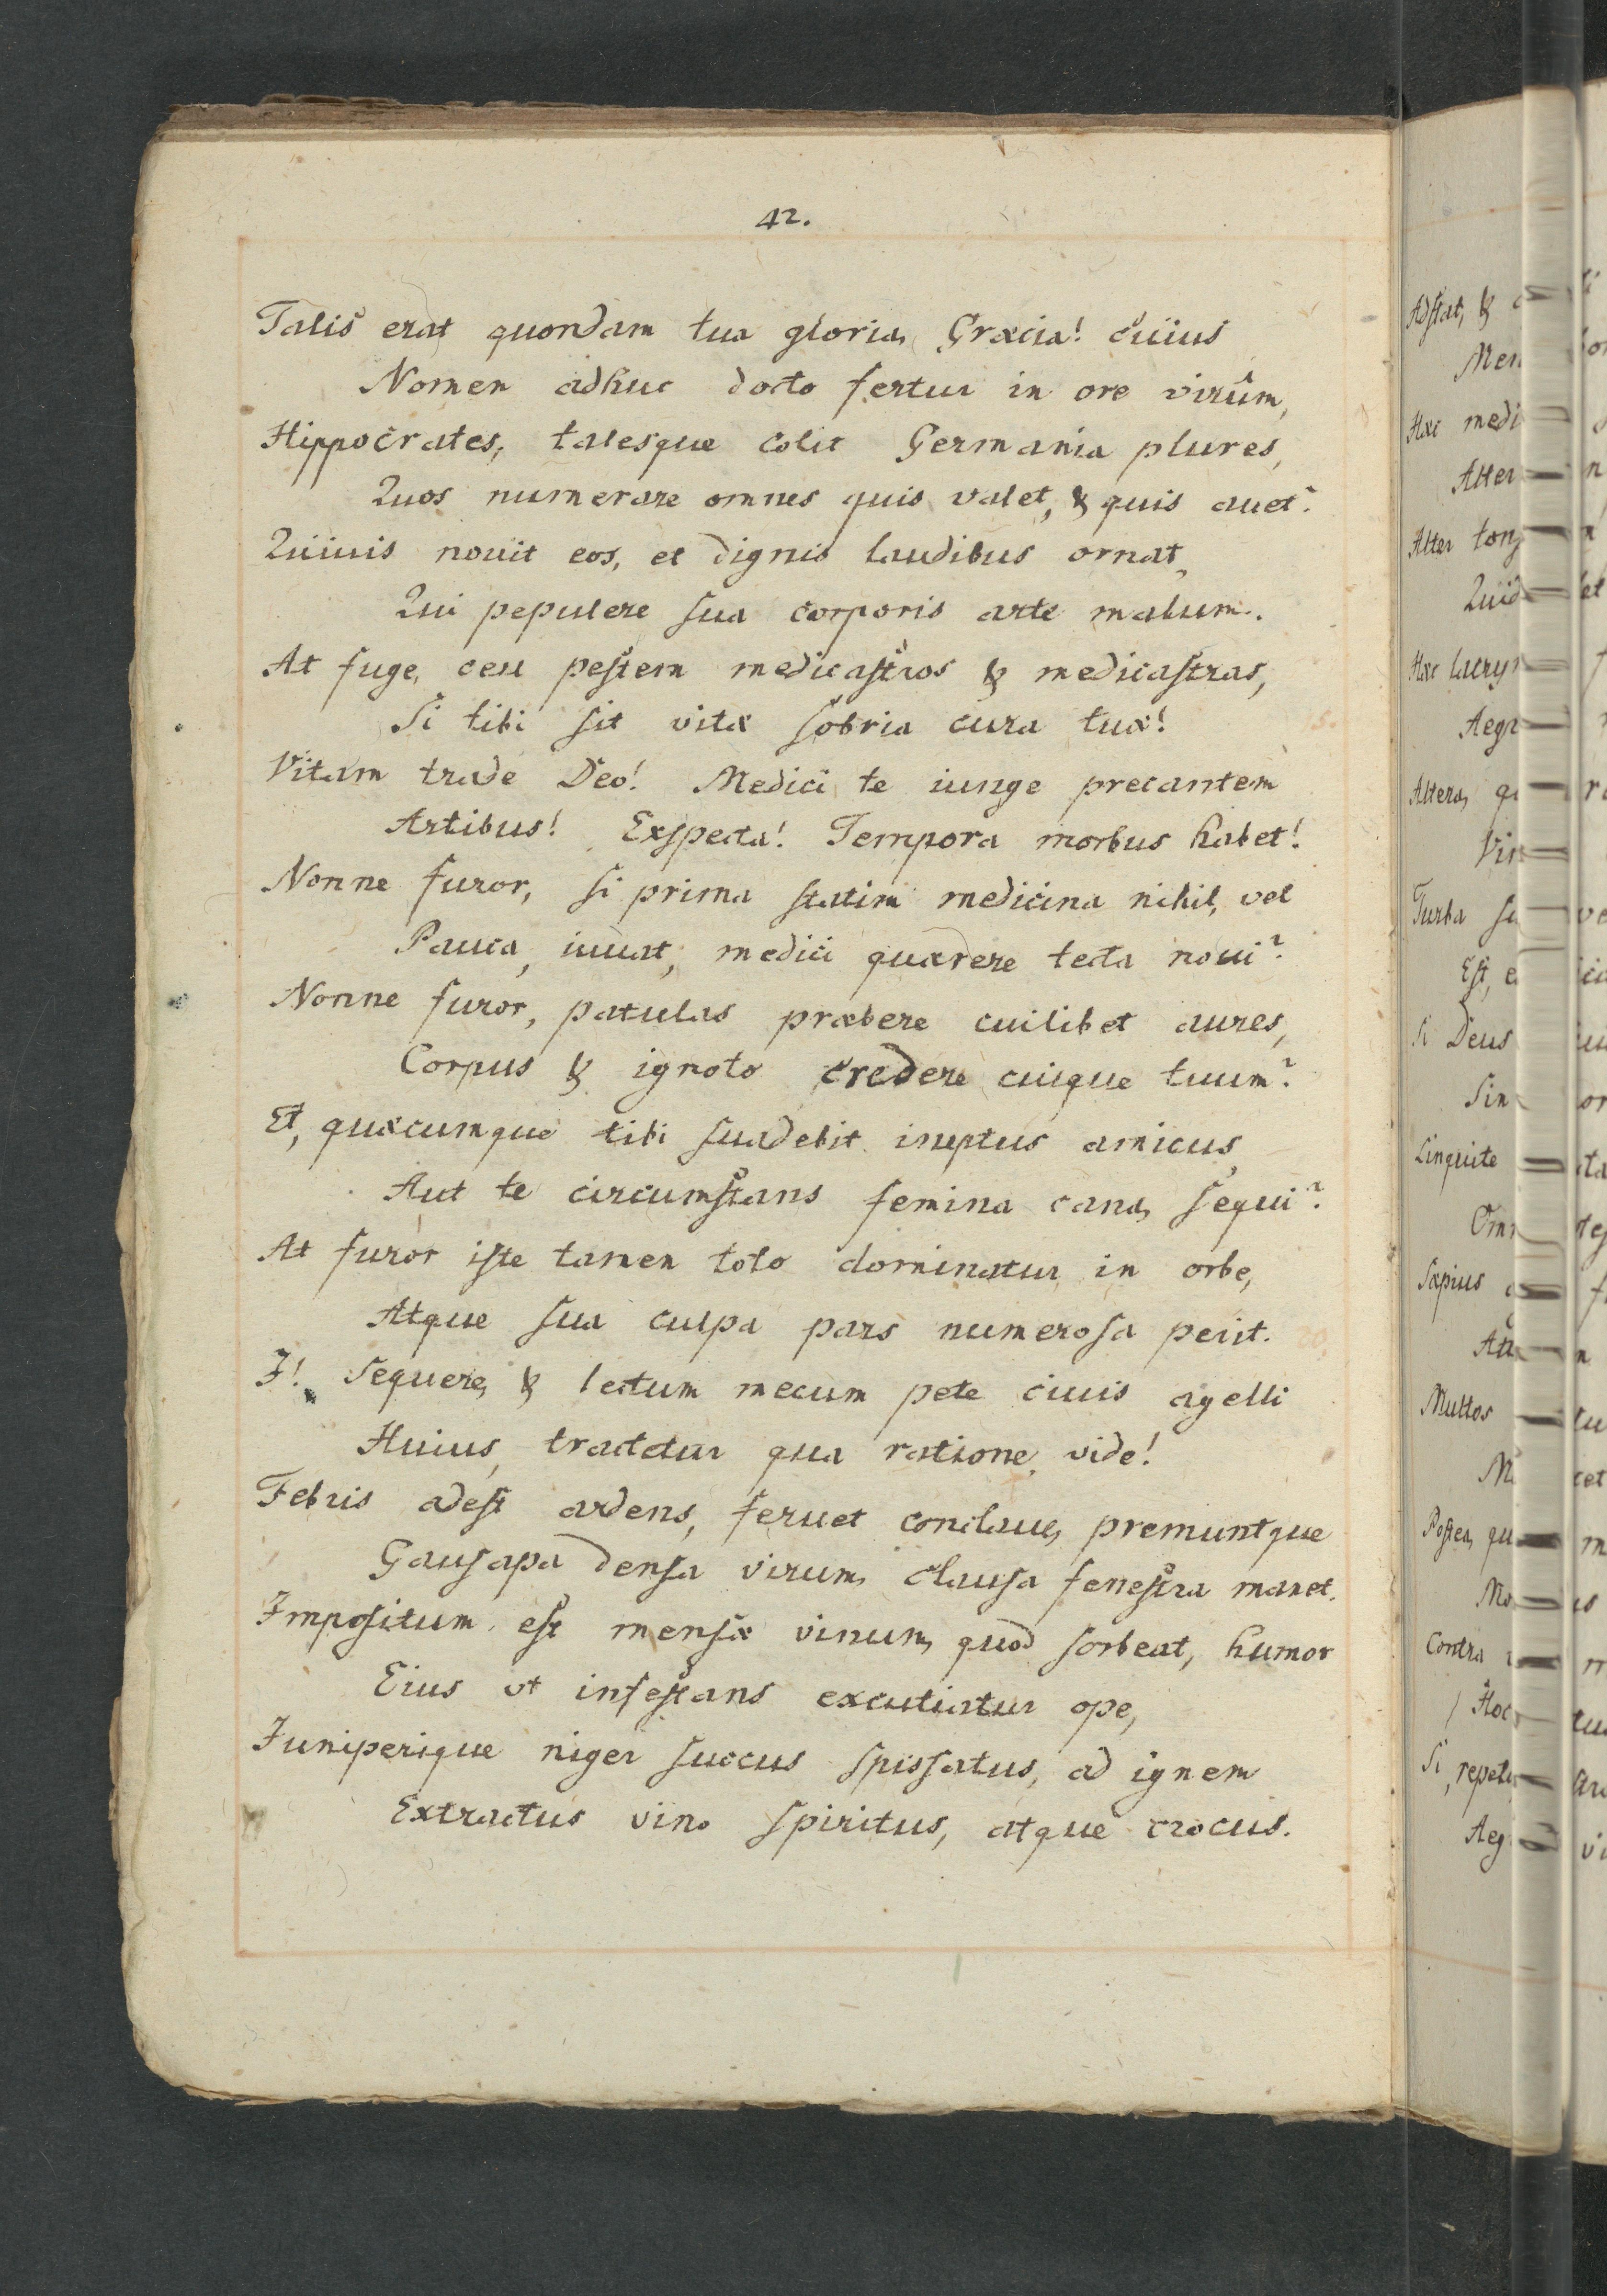 42.
Talis erat quondam tua gloria, Græcia! cuius
Nomen adhuc docto fertur in ore virûm,
Hippocrates, talesque colit Germania plures,
Quos numerare omnes quis valet, & quis auet?
Quiuis nouit eos, et dignis laudibus ornat,
Qui pepulere sua corporis arte malum.
At fuge, ceu pestem medicastros & medicastras,
Si tibi sit vitæ sobria cura tuæ!
Vitam trade Deo! Medici te iunge precantem
Artibus! Exspecta! Tempora morbus habet!
Nonne furor, si prima statim medicina nihil, vel
Pauca, iuuat, medici quærere tecta noui?
Nonne furor, patulas præbere cuilibet aures,
Corpus & ignoto credere cuique tuum?
Et, quæcumque tibi suadebit ineptus amicus,
Aut te circumstans femina cana, sequi?
At furor iste tamen toto dominatur in orbe,
Atque sua culpa pars numerosa perit.
I! Sequere, & lectum mecum pete ciuis agelli
Huius, tractetur qua ratione, vide!
Febris adest ardens, feruet conclaue, premuntque
Gausapa densa virum, clausa fenestra manet.
Impositum est mensæ vinum, quod sorbeat, humor
Eius vt infestans excutiatur ope,
Juniperique niger succus spissatus, ad ignem
Extractus vino spiritus, atque crocus.
Adstat, &
Hæc
Alter
Quid
Hæc
Altera,
Turba
Est,
Si Deus
Linquite
Sæpius
Multos
Postea,
Contra
Hoc
Si,